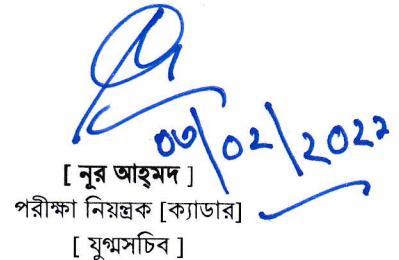 ০৩/০২/২০২২
[ নূর আহ্‌মদ ]
পরীক্ষা নিয়ন্ত্রক [ক্যাডার]
[ যুগ্মসচিব ]